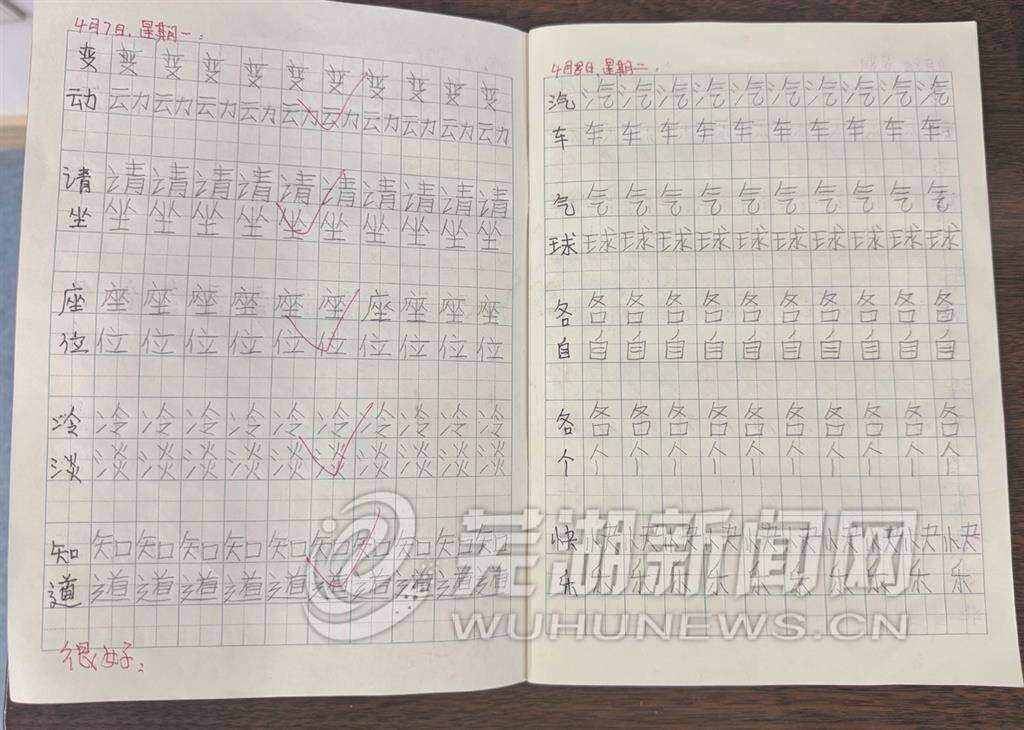 4月7日,星期一:
变变变变变变变变变变变
动动动动动动动动动动动
请请请请请请请请请请请
坐坐坐坐坐坐坐坐坐坐坐
座座座座座座座座座座座
位位位位位位位位位位位
冷冷冷冷冷冷冷冷冷冷冷
淡淡淡淡淡淡淡淡淡淡淡
知知知知知知知知知知知
道道道道道道道道道道道
很好:
4月8日,星期二.
汽汽汽汽汽汽汽汽汽汽汽
车车车车车车车车车车车
气气气气气气气气气气气
球球球球球球球球球球球
各各各各各各各各各各各
自自自自自自自自自自自
各各各各各各各各各各各
个个个个个个个个个个个
快快快快快快快快快快快
乐乐乐乐乐乐乐乐乐乐乐
芜湖新闻网
WUHUNEWS.CN